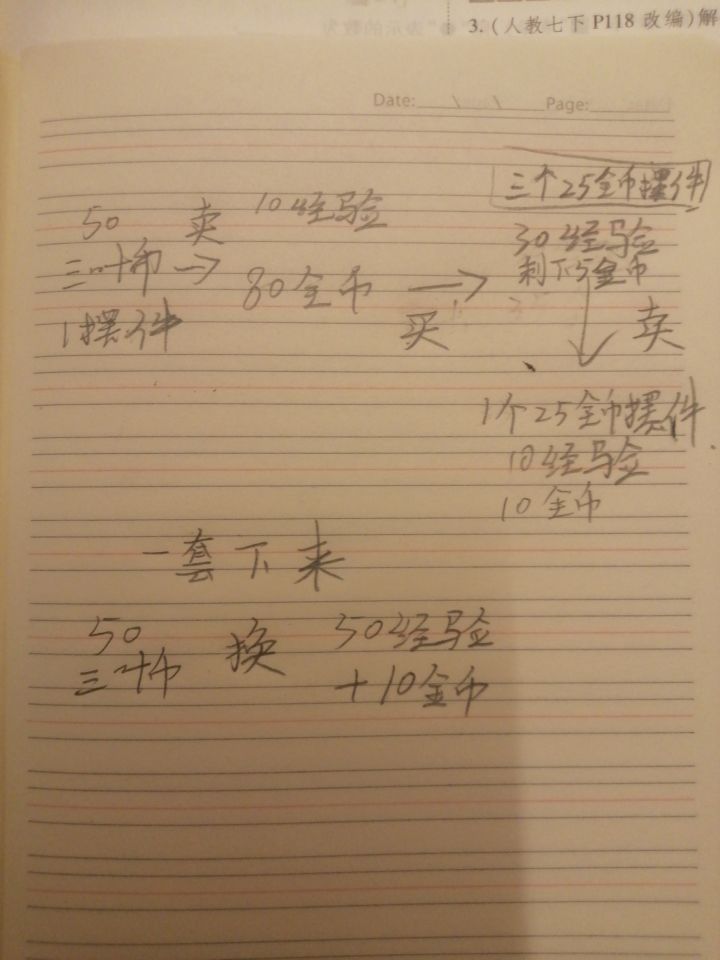 3. (人教七下 P118 改编)解
Date: / / Page:
50 卖 10经验
三叶币 → 80金币 → 买
1摆件
三个25金币摆件
30经验
剩下5金币
卖
1个25金币摆件
10经验
10金币
一套下来
50 换 50经验
三叶币 +10金币